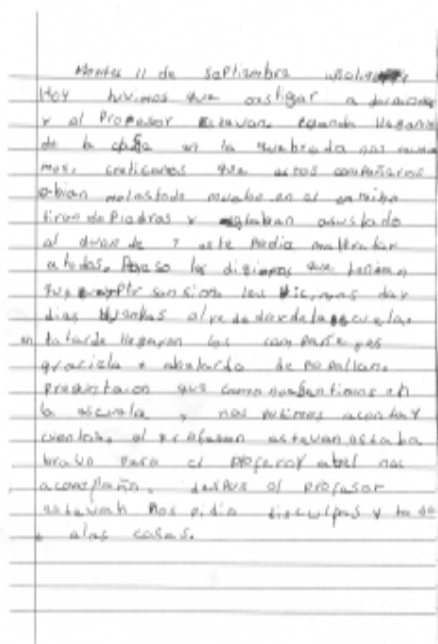 Martes 11 de septiembre
Hoy tuvimos que castigar a
y al Profesor estavan, cuando llegamos
de la en la quebrada nos reuni
mos, criticamos que estos compañeros
abian molestado mucho en el camino
tiron de Piedras y estaban asustado
al duende y este Podia maltratar
atodos. Poreso les digimos que tenian
que cumplir sansion los hicimos dar
dias alrededordelaescuela.
en latarde llegaron los compañeros
graciela abelardo de popallan.
preguntaron que como nossentimos en
la escuela, nos pusimos acontar
cuentos, el profesor estavan estaba
bravo pero el profesor abel nos
acompaño. despues el profesor
estavan nos pidio disculpas y todo
alas casas.